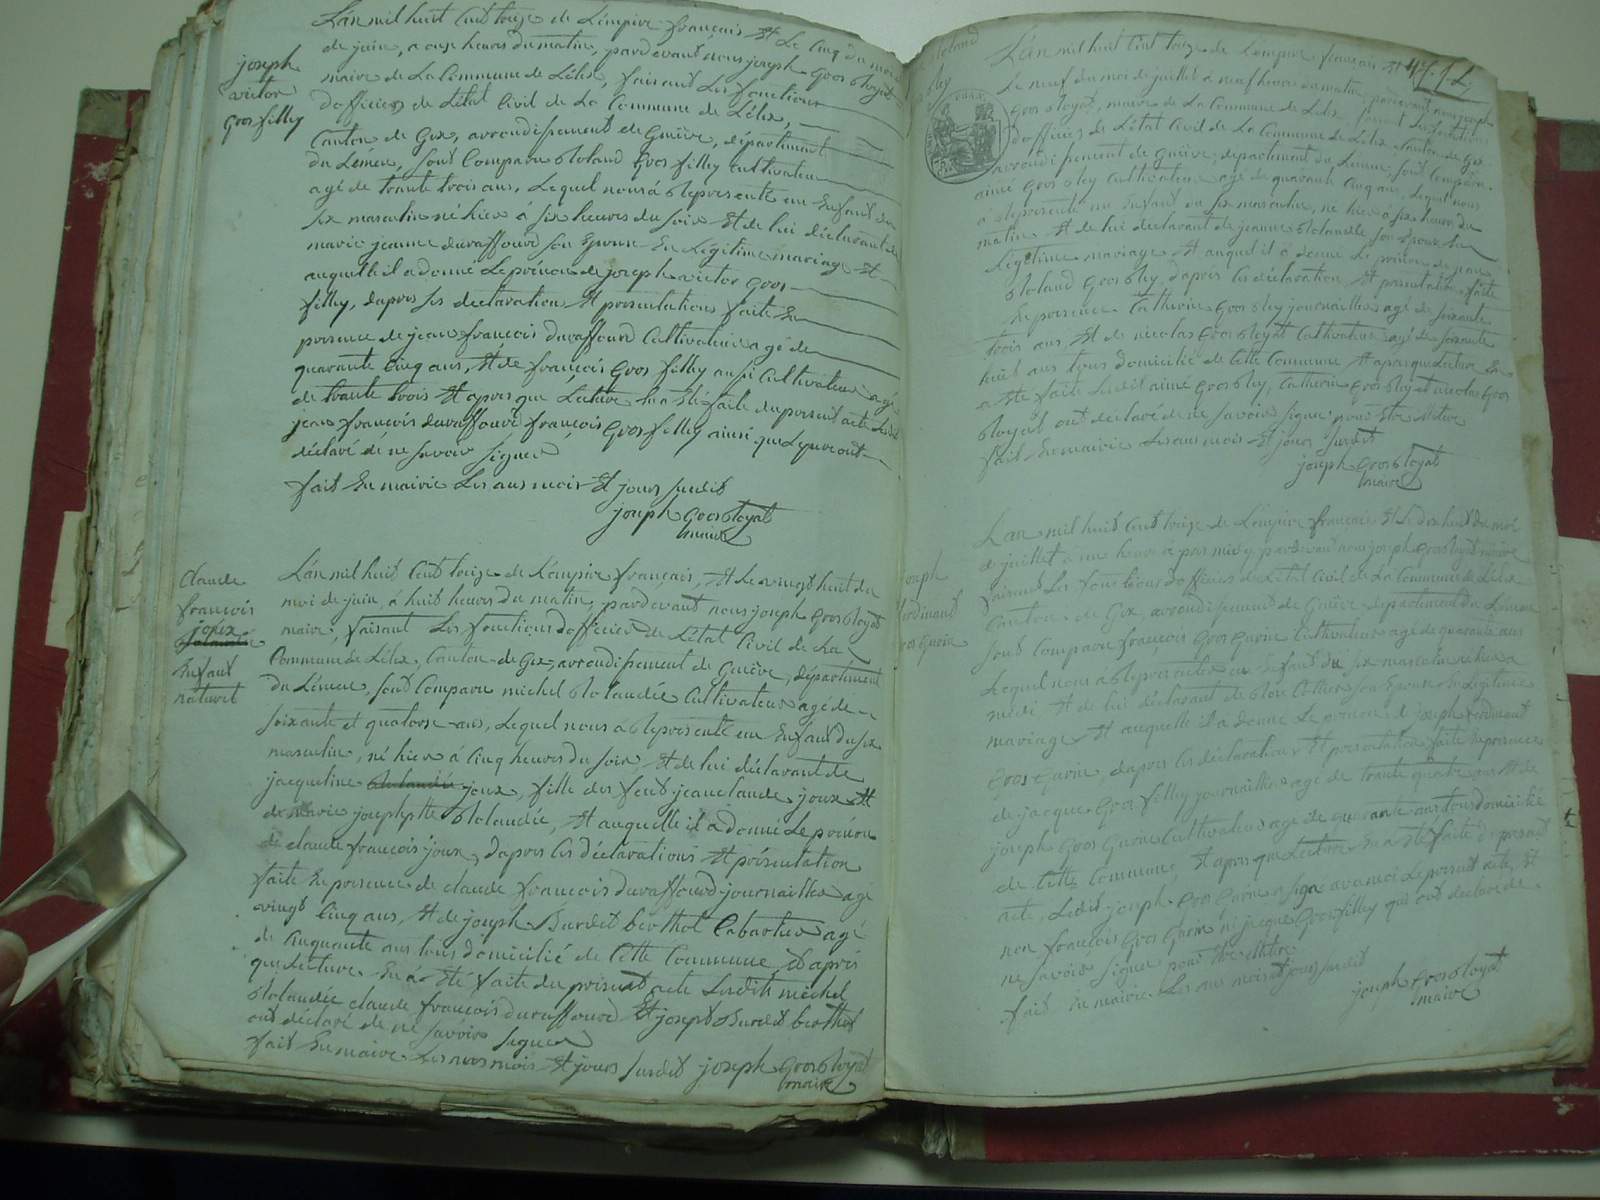 joseph
victor
gros filly
L'an mil huit cent treize de L'empire français Et Le cinq du mois
de juin, a onze heures du matin, pardevant nous joseph Grosbloyat
maire de La Commune de Lélex, faisant Les fonctions
d'officier de L'état Civil de La Commune de Lélex,
Canton de Gex, arrondissement de Genève, département
du Léman, sont Comparu Roland Gros filley Cultivateur
agé de trente trois ans, Lequel nous a Représenté un Enfant du
sex masculin né hier à six heures du soir Et de lui déclarant de
marie jeanne duraffourd son Epouse En Légitime mariage Et
auquelle il a donné Le prénom de joseph victor Gros
filley, dapres ses déclaration Et présentations faite En
présence de jean françois duraffourd Cultivateur agé de
quarante Cinq ans, Et de françois Gros filley aussi Cultivateur agé
de trente trois Et apres que Lecture En a Eté faite du présent acte Lesdits
jean françois duraffourd françois Gros filley ainsi que Le pere ont
déclaré de ne savoir signer
fait En mairie Les ans mois Et jours susdit
joseph Grosbloyat
maire
Claude
françois
joux
Enfant
naturel
L'an mil huit Cent treize de L'empire français, Et Le vingt huit du
moi de juin, à huit heures du matin, pardevant nous joseph Grosbloyat
maire, faisant Les fonctions d'officier de L'état Civil de La
Commune de Lélex, Canton de Gex, arrondissement de Genève, département
du Léman, sont Comparu michel Rolandée Cultivateur agé de
soixante et quatorse ans, Lequel nous a Représenté un Enfant du sex
masculin, né hier à Cinq heures du soir, Et de lui déclarant de
jacqueline joux, fille de feut jean claude joux Et
de marie josephtte Rolandée, Et auquelle il a donné Le prénom
de claude françois joux, dapres Les déclarations Et présentation
faite En présence de claude françois duraffourd journaillier agé
vingt Cinq ans, Et de joseph Burdet berthot Cabartier agé
de Cinquante ans tous domicilié de Cette Commune Et après
que Lecture En a Eté faite du présent acte Lesdits michel
Rolandée claude françois duraffourd Et joseph Burdet berthot
ont déclaré de ne savoir signer
fait En mairie Les ans mois Et jours susdit joseph Grosbloyat
maire
L'an mil huit Cent treize de L'empire français Et
Le neuf du moi de juillet à neuf heures du matin, pardevant nous joseph
Grosbloyat, maire de La Commune de Lélex, faisant Les fonctions
d'officier de L'état Civil de La Commune de Lélex Canton de Gex
arrondissement de Genève, département du Léman, sont Comparu
aimé Cultivateur agé de quarante Cinq ans, Lequel nous
a Représenté un Enfant du sex masculin, né hier à six heures du
matin Et de lui déclarant de jeanne Rolandée son Epouse En
Légitime mariage Et auquel il a donné Le prénom de jean
Roland dapres Les déclaration Et présentation faite
En présence journaillier agé de soixante
trois ans Et de nicolas Grosbloyat Cultivateur agé de soixante
huit ans tous domicilié de Cette Commune Et apres que Lecture En
a Eté faite Lesdit aimé Et nicolas Gros
bloyat ont déclaré de ne savoir signer
fait En mairie Les ans mois Et jours susdit
joseph Grosbloyat
maire
joseph
ferdinant
Gros Gurin
L'an mil huit Cent treize de L'empire français Et Le dix huit du moi
de juillet à une heure pardevant nous joseph Grosbloyat maire
faisant Les fonctions d'officier de L'état Civil de La Commune de Lélex
Canton de Gex, arrondissement de Genève département du Léman
sont Comparu françois Gros Gurin Cultivateur agé de quarante ans
Lequel nous a Représenté un Enfant du sex masculin né hier a
midi Et de lui déclarant de son Epouse En Légitime
mariage Et auquelle il a donné Le prénom de joseph ferdinant
Gros Gurin, dapres Les déclaration Et présentation faite En présence
de jacque Gros filley journaillier agé de trente quatre ans Et de
joseph Gros Gurin Cultivateur agé de quarante ans tous domicilié
de Cette Commune, Et apres que Lecture En a Eté faite du présent
acte, Ledit joseph Gros Gurin a signé avec moi Le présent acte, Et
non françois Gros Gurin ni jacque Gros filley qui ont déclaré de
ne savoir signer
fait En mairie Les ans mois Et jours susdit
joseph Grosbloyat
maire